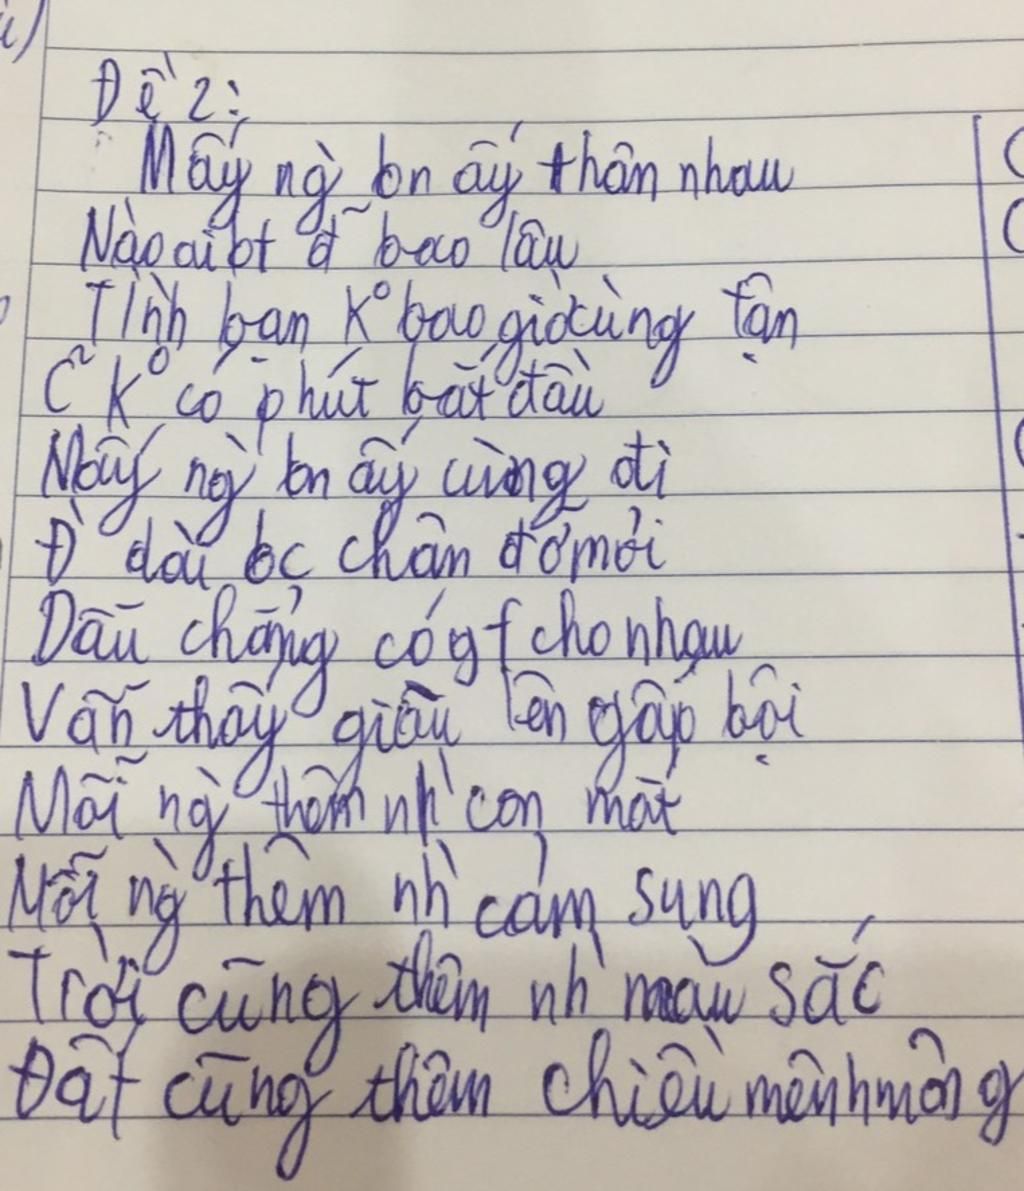 Đề 2:
Mấy ng` bn ấy thân nhau
Nào ai bt đ~ bao lâu
Tình bạn k° bao giờ cùng tận
C~ k° có phút bắt đầu
Mấy ng` bn ấy cùng đi
Đ` dài bc chân đỡ mỏi
Dẫu chẳng có gf cho nhau
Vẫn thấy giàu lên gấp bội
Mỗi ng` thêm nh` con mắt
Mỗi ng` thêm nh` cảm sung
Trời cũng thêm nh` màu sắc
Đất cũng thêm chiều mênh mông